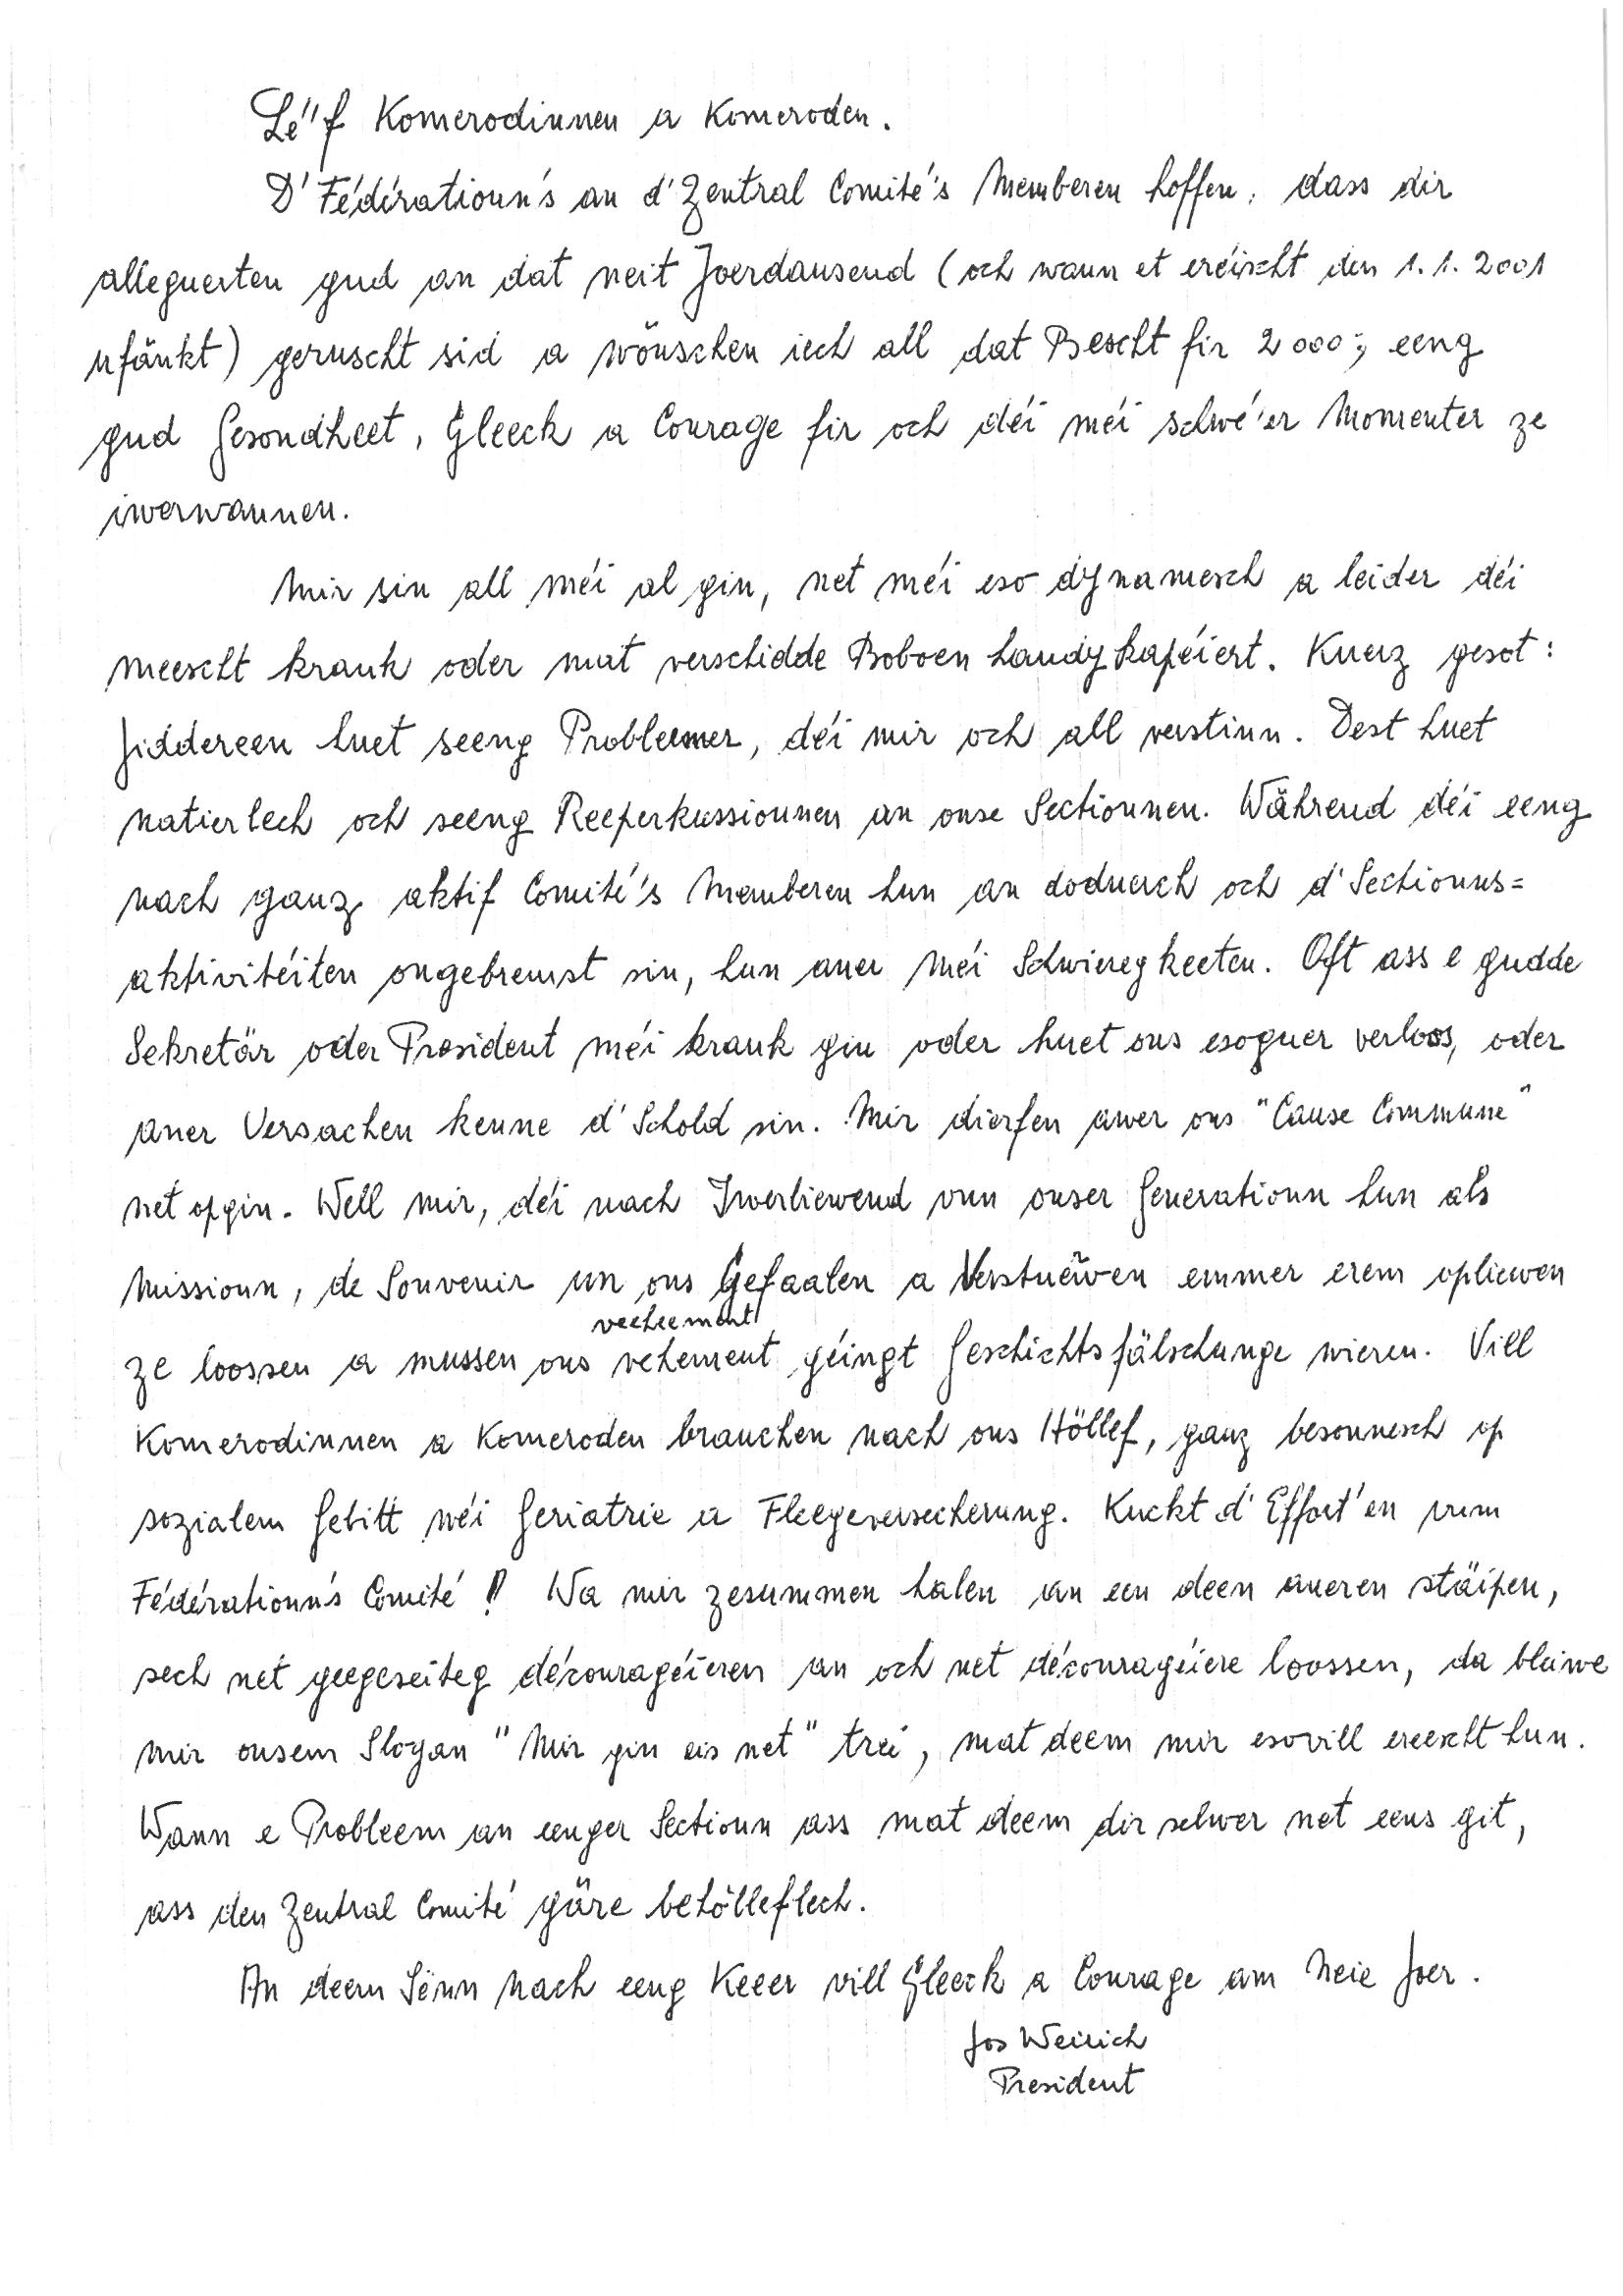 Lé"f Komerodinnen a Komeroden.
D'Fédératioun's an d'Zentral Comité's Memberen hoffen, dass dir
alleguerten gud an dat neit Joerdausend (och wann et eréischt den 1.1.2001
ufänkt) geruscht sid a wönschen iech all dat Bescht fir 2000; eeng
gud Gesondheet, Gleeck a Courage fir och déi méi schwé'er Momenter ze
iwerwannen.
Mir sin all méi al gin, net méi eso dynamesch a leider déi
meescht krank oder mat verschidde Boboen handykapéiert. Kuerz gesot:
Jiddereen huet seeng Probleemer, déi mir och all verstinn. Dest huet
natierlech och seeng Reeperkussiounen an onse Sectiounen. Während déi eeng
nach ganz aktif Comité's Memberen hun an doduerch och d'Sectiouns=
aktivitéiten ongebremst sin, hun aner méi Schwieregkeeten. Oft ass e gudde
Sekretär oder President méi krank gin oder huet ons esoguer verloos, oder
aner Versachen kenne d'Schold sin. Mir dierfen awer ons "Cause Commune"
net opgin. Well mir, déi nach Iwerliewend vun onser Generatioun hun als
Missioun, de Souvenir un ons Gefaalen a Verstuerwen emmer erem opliewen
veeheement
ze loossen a mussen ons vehement géingt Geschichtsfälschunge wieren. Vill
Komerodinnen a Komeroden brauchen nach ons Höllef, ganz besonnesch op
sozialem Gebitt wéi Geriatrie a Fleegeversecherung. Kuckt d'Effort'en vum
Fédératioun's Comité! Wa mir zesummen halen an een deen aneren stäipen,
sech net geegeseiteg découragéieren an och net découragéiere loossen, da bleiwe
mir onsem Slogan "Mir gin eis net" trei, mat deem mir esovill ereescht hun.
Wann e Probleem an eenger Sectioun ass mat deem dir selwer net eens git,
ass den Zentral Comité gäre behölleflech.
An deem Sënn nach eeng Keeer vill Gleeck a Courage am Neie Joer.
Jos Weirich
President